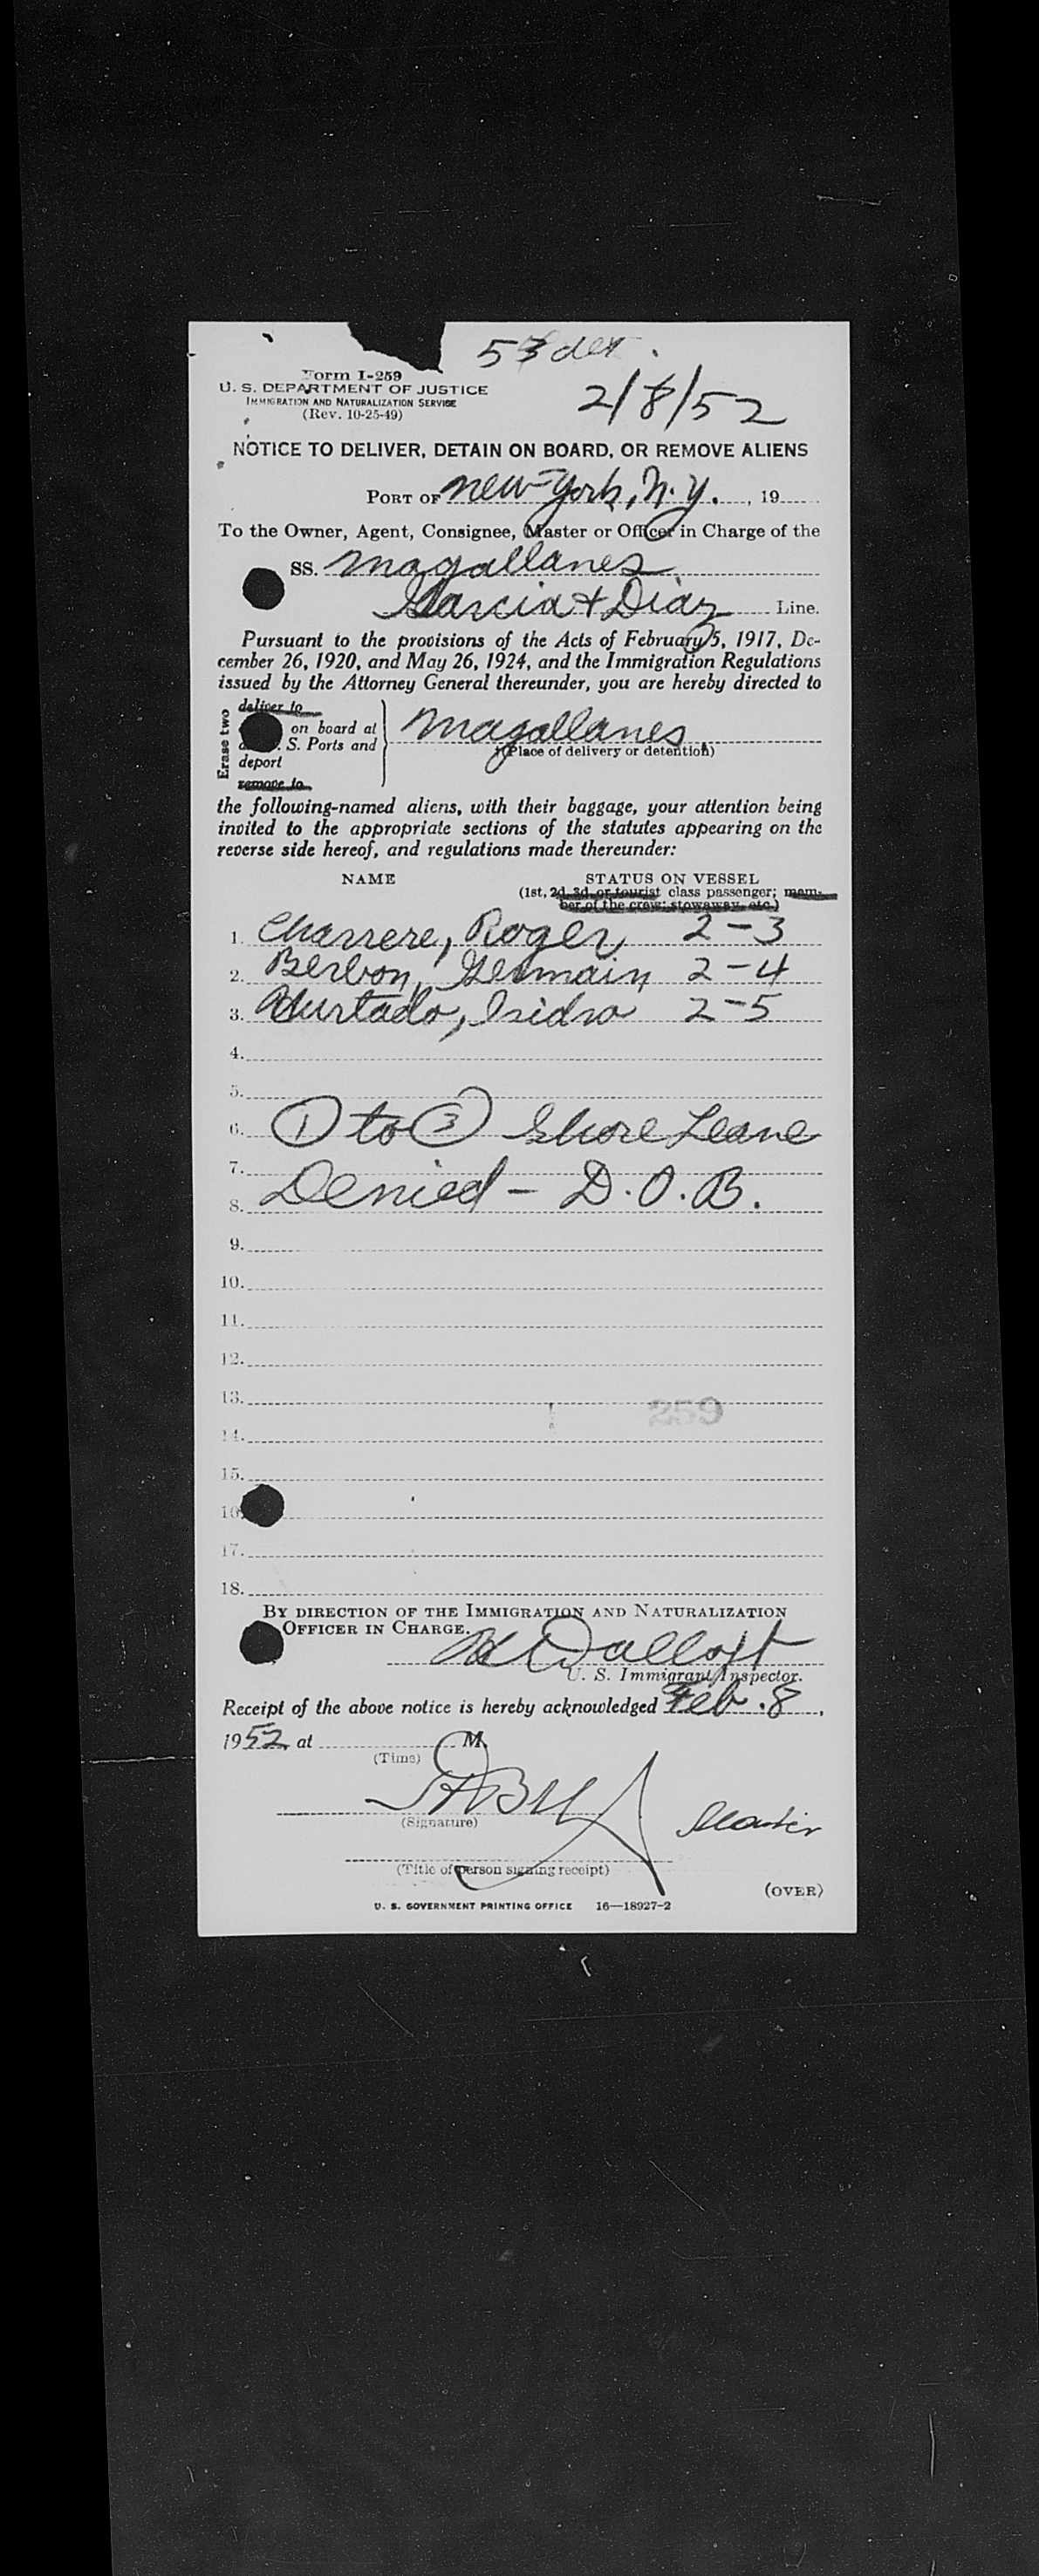 53 det.
Form I-259
U. S. DEPARTMENT OF JUSTICE
IMMIGRATION AND NATURALIZATION SERVICE
(Rev. 10-25-49)
2/8/52
NOTICE TO DELIVER, DETAIN ON BOARD, OR REMOVE ALIENS
PORT OF New York, N.Y. , 19
To the Owner, Agent, Consignee, Master or Officer in Charge of the
SS. Magallanes
Garcia + Diaz Line.
Pursuant to the provisions of the Acts of February 5, 1917, De-
cember 26, 1920, and May 26, 1924, and the Immigration Regulations
issued by the Attorney General thereunder, you are hereby directed to
Erase two
deliver to
on board at
S. Ports and
deport
remove to
Magallanes
(Place of delivery or detention)
the following-named aliens, with their baggage, your attention being
invited to the appropriate sections of the statutes appearing on the
reverse side hereof, and regulations made thereunder:
NAME STATUS ON VESSEL
(1st, 2d, 3d, or tourist class passenger; mem-
ber of the crew; stowaway, etc.)
1. Charrere, Roger 2-3
2. Berbon, Germain 2-4
3. Hurtado, Isidro 2-5
4.
5.
6. 1 to 3 Shore Leave
7.
8. Denied - D.O.B.
9.
10.
11.
12.
13.
259
14.
15.
16.
17.
18.
BY DIRECTION OF THE IMMIGRATION AND NATURALIZATION
OFFICER IN CHARGE.
U. S. Immigrant Inspector.
Receipt of the above notice is hereby acknowledged Feb. 8,
1952, at M.
(Time)
(Signature)
Master
(Title of person signing receipt)
(OVER)
U. S. GOVERNMENT PRINTING OFFICE 16—18927-2